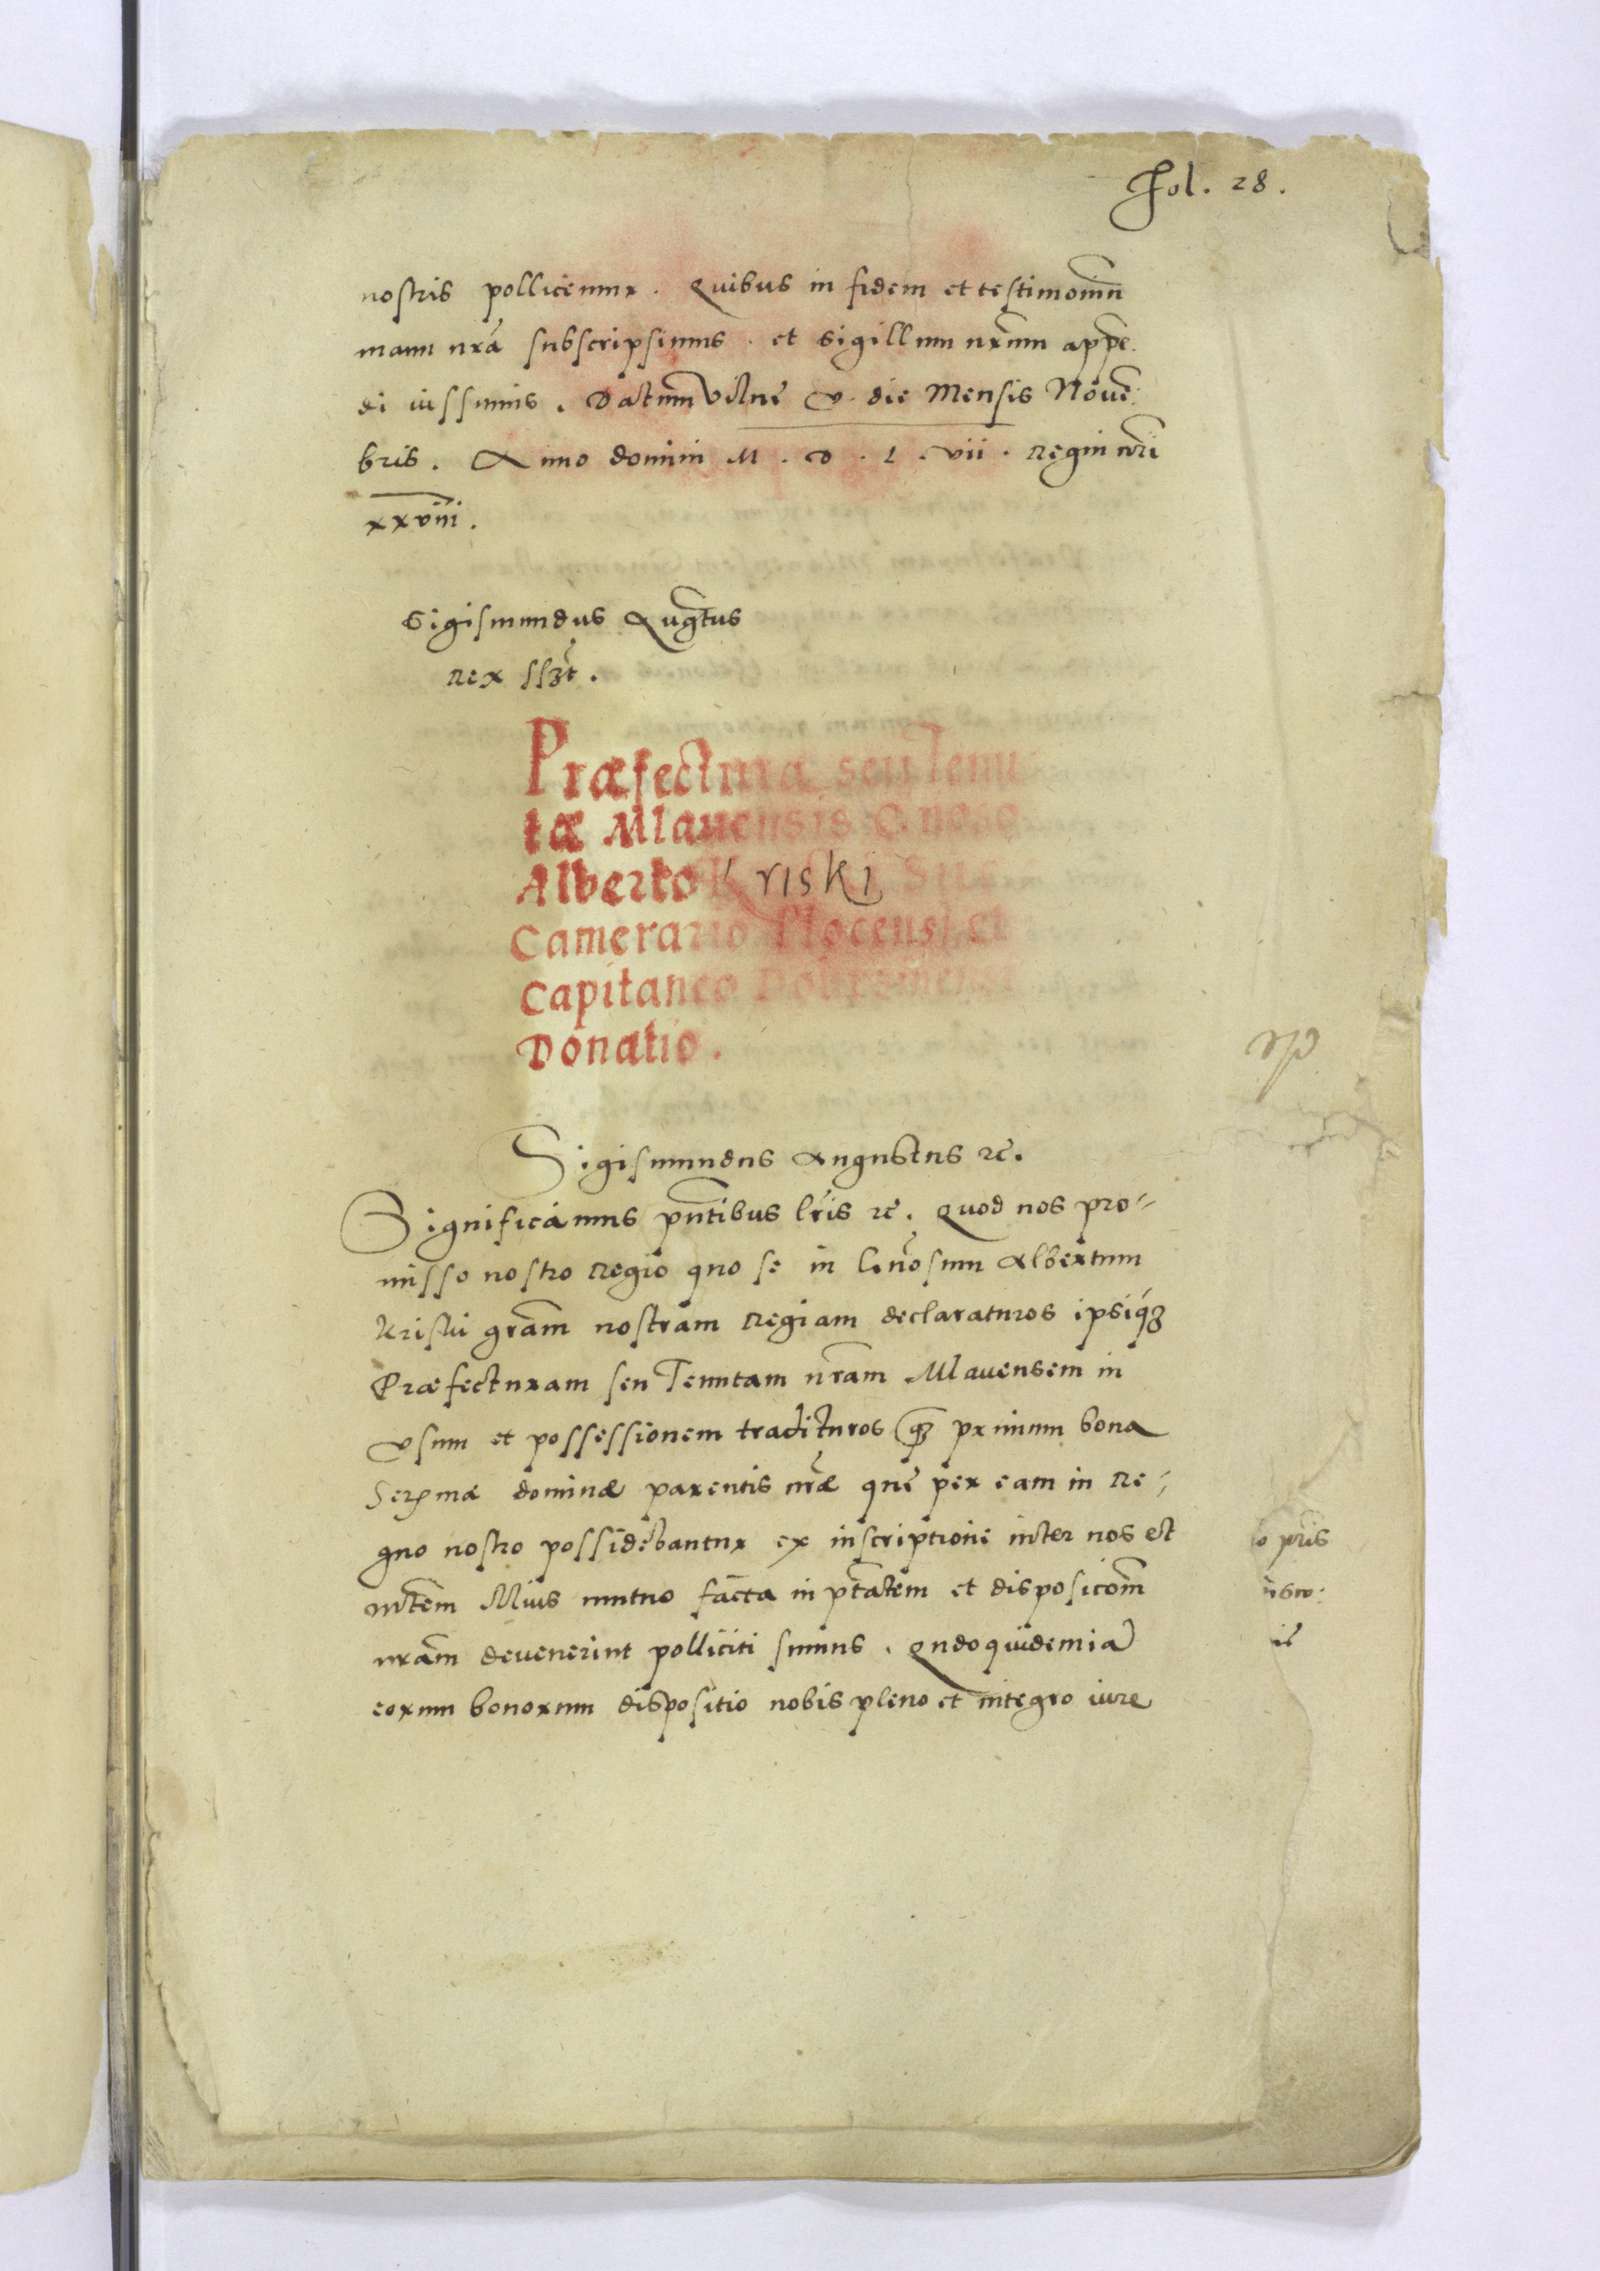 Fol. 28.
nostris pollicemur. Quibus in fidem et testimoniũ
manu nrã subscripsimus. et sigillum nrũm appẽ
di iussimus. Datum Vilnę v. die Mensis Nouẽ:
bris. Anno domini M. D. L. vii. Regni nr̃i
xxviii.
Sigismundus Augtus
Rex sszt.
Præfectura seu Tenu
tæ Mlauensis G noso
Alberto Kriski Suc
Camerario Plocensi et
Capitaneo Dobrzinensi
Donatio.
Sigismundus Augustus zc.
Significamus pñtibus lr̃is zc. Quod nos pro-
misso nostro Regio quo se in Gñosum Albertum
Kriski grãm nostram Regiam declaraturos ipsiq3
Præfecturam seu Tenutam nrãm Mlauensem in
vsum et possessionem tradituros q3 primum bona
Serma dominæ parentis nræ quę per eam in Re-
gno nostro possidebantur ex inscriptione inter nos et
mtem Illius mutuo facta in ptãtem et disposicõm
nrãm deuenerint polliciti sumus. Qndoquidem ia
eorum bonorum dispositio nobis pleno et integro iure